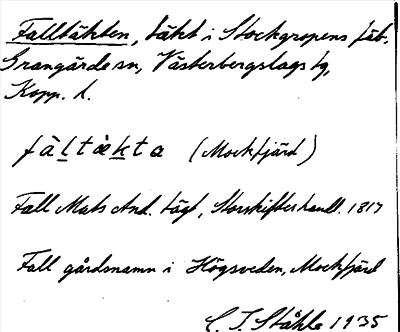 Falltäkten, täkt i Stockgropens fäb.
Grangärde sn, Västerbergslags tg,
Kopp. l.
fàltǻkta (Mockfjärd)
Fall Mats And. tägt, Storskifteshandl. 1817
Fall gårdsnamn i Högsveden, Mockfjärd
C. I. Ståhle 1935